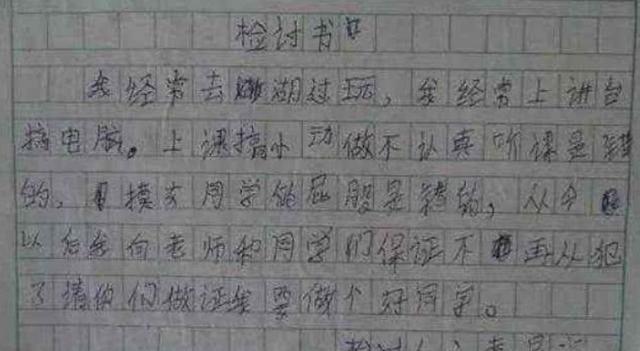 检讨书
我经常去湖过玩，我经常上讲台
搞电脑。上课搞小动做不认真听课是错
的，摸女同学的屁股是错的，从今
以后我向老师和同学们保证不再从犯
了请你们做证我要做个好同学。
检讨人